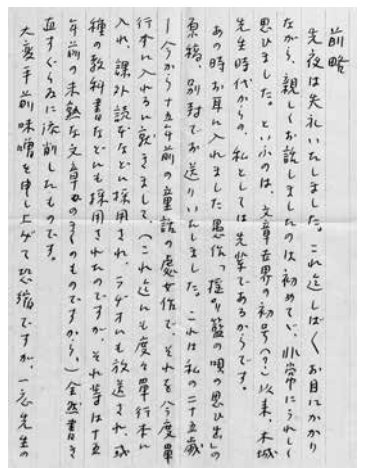 前略
先夜は失礼いたしました。これ迄しばしばお目にかかり
ながら、親しくお話しましたのは初めてで、非常にうれしく
思ひました。といふのは、文章世界の初号(?)以来、木城
先生時代からの、私としては先輩であるからです。
あの時お耳に入れました愚作「揺り籃の唄の思ひ出」の
原稿、別封でお送りいたしました。これは私の二十五歳
―今から十五年前の童話の処女作で、それを今度単
行本に入れるに就きまして、(これ迄にも度々単行本に
入れ、課外読本などに採用され、ラヂオにも放送され、或
種の教科書などにも採用されたのですが、それ等は十五
年前の未熟な文章そのまゝのものですから、)全然書き
直すぐらゐに添削したものです。
大変手前味噌を申し上げて恐縮ですが、一念先生の